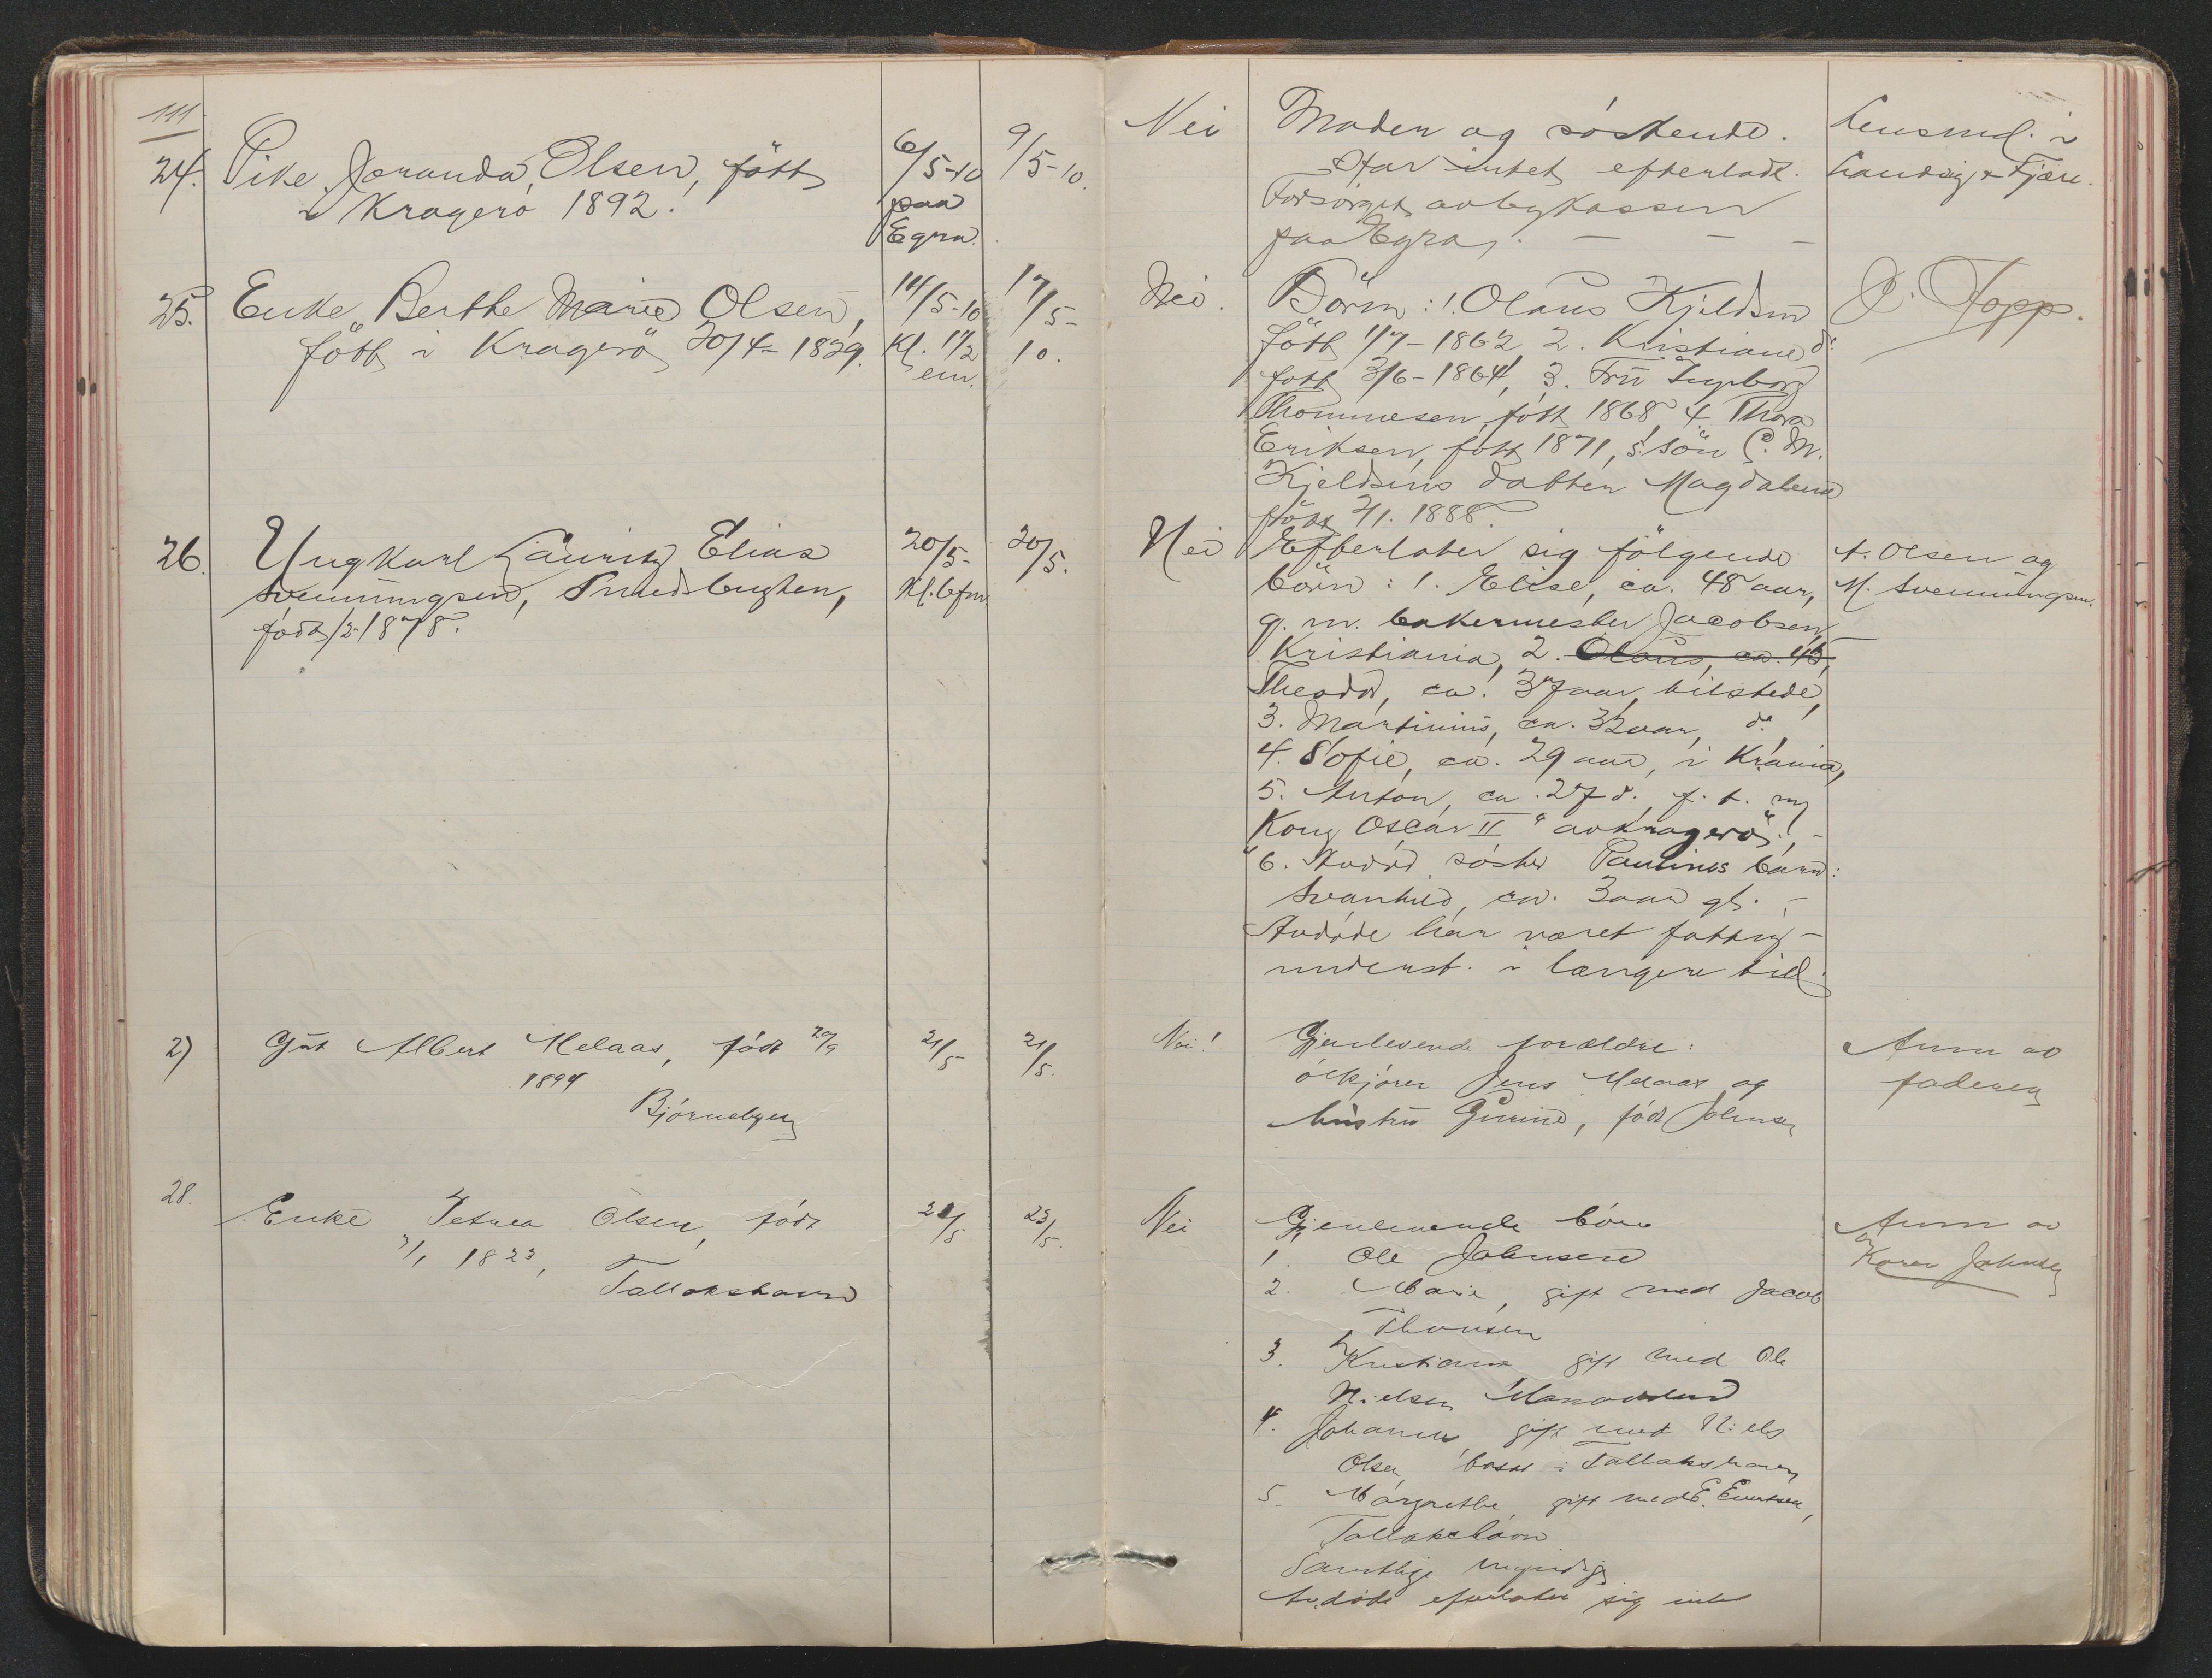 111
24. Pike Joranda Olsen, født
i Kragerø 1892.
6/5-10
paa
Egra.
9/5-10.
Nei
Moder og søskende.
Har intet efterladt.
Forsørget av bykassen
paa Egra. — — —
Lensmd. i
Landvig & Fjære.
25. Enke Berthe Marie Olsen,
født i Kragerø 20/4-1829.
14/5-10
Kl. 1 1/2
em.
17/5-
10.
Nei.
Börn: 1. Olaus Kjeldsen
født 1/7-1862 2. Kristiane do
født 3/6-1864, 3. Fru Ingeborg
Thommesen, født 1868 4. Thora
Eriksen, født 1871, 5. søn C. M.
Kjeldsens datter Magdalene
født 2/1. 1888.
P. Topp.
26. Ungkarl Lauritz Elias
Svenningsen, Smedsbugten,
født /2-1878.
20/5-
Kl. 6 fm.
20/5.
Nei
Efterlater sig følgende
børn: 1. Elise, ca. 48 aar,
g. m. bakermester Jacobsen,
Kristiania, 2. Olaus, ca. 45,
Theodor, ca. 37 aar, tilstede,
3. Martinius, ca. 32 aar, do,
4. Sofie, ca. 29 aar, i Krania,
5. Anton, ca. 27 d., f. t. m/
Kong Oscar II" av Kragerø; —
"6. Avdød søster Paulines barn:
Svanhild, ca. 3 aar gl. —
Avdøde har været fattig-
underst. i længere tid.
A. Olsen og
M. Svenningsen.
27 Gut Albert Melaas, født 20/9
1894
Bjørnebyen
21/5
21/5.
Nei!
Gjenlevende forældre:
ølkjører Jens Melaas og
hustru Gurine, født Johnsen
Anm av
faderen
28. Enke Petrea Olsen, født
3/1 1823,
Tallakshavn
21/5
23/5.
Nei
Gjenlevende børn
1. Ole Johnsen
2. Marie, gift med Jacob
Thomsen
3. Kristiane gift med Ole
Nielsen
4. Johanne gift med Niels
Olsen, bosat i Tallakshavn
5. Margrethe, gift med E. Evertsen,
Tallakshavn
Samtlige myndige
Avdøde efterlater sig intet
Anm av
Karen Johnsen